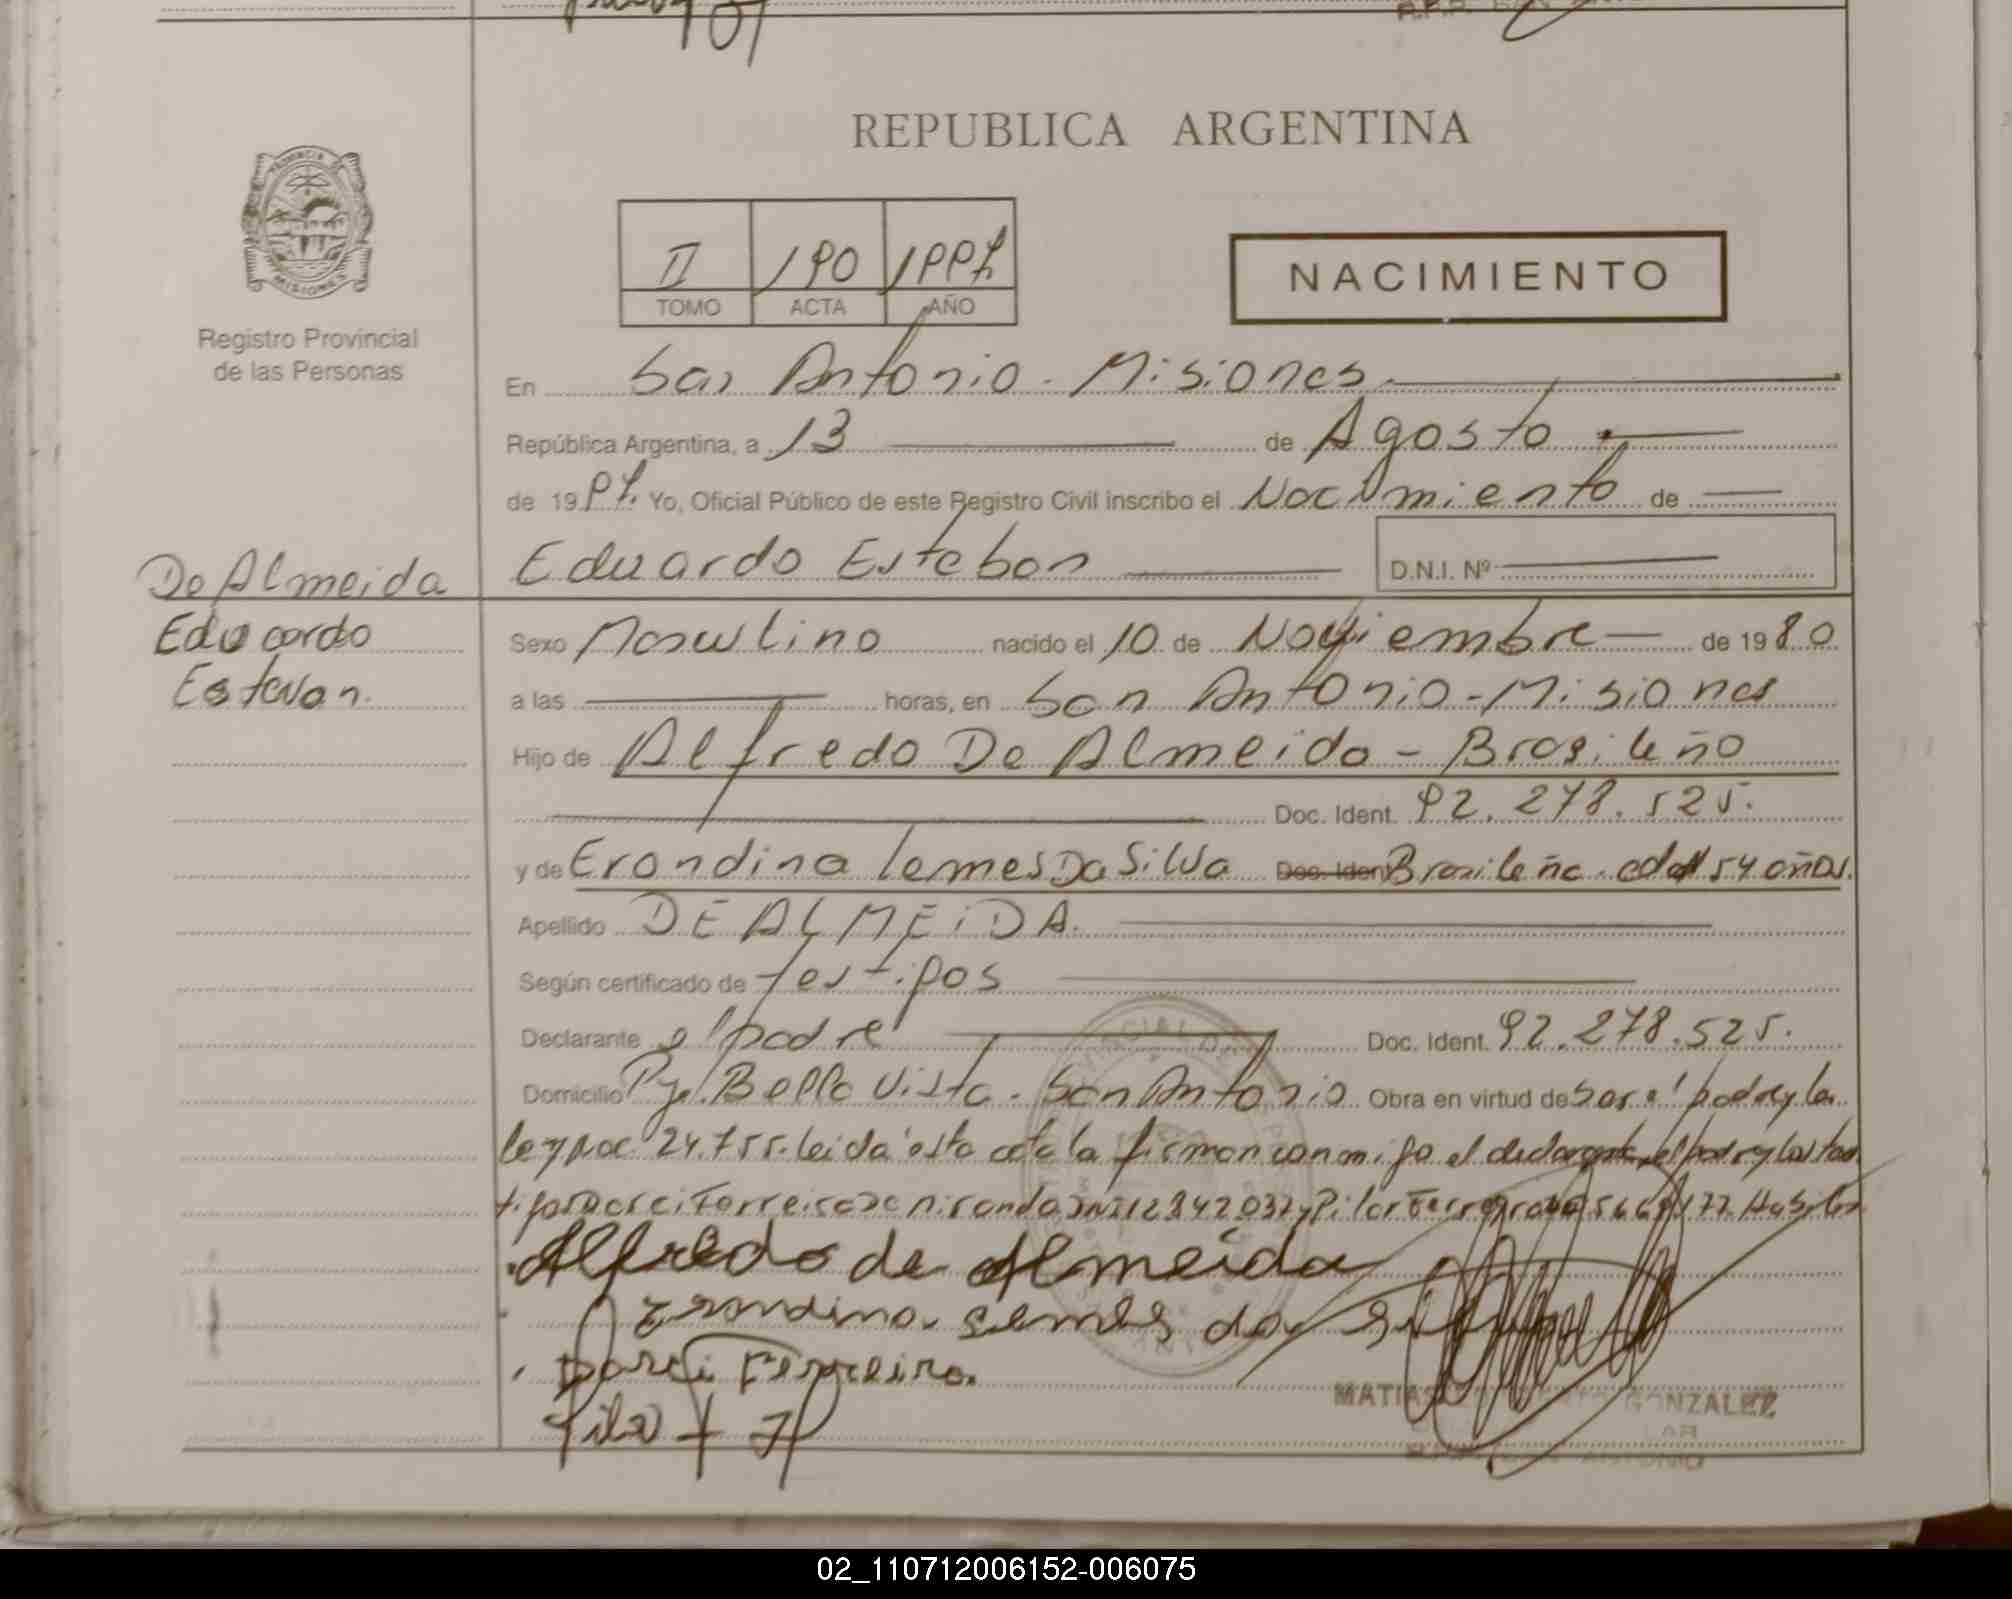 REPUBLICA ARGENTINA
PROVINCIA DE
MISIONES
Registro Provincial
de las Personas
II 190 1997
TOMO ACTA AÑO
NACIMIENTO
En San Antonio - Misiones.
República Argentina, a 13 de Agosto
de 1997. Yo, Oficial Público de este Registro Civil inscribo el Nacimiento de
Eduardo Esteban D.N.I. Nº
De Almeida
Eduardo
Estevan.
Sexo Masculino nacido el 10 de Noviembre de 1980
a las horas, en San Antonio - Misiones
Hijo de Alfredo De Almeida - Brasileño
Doc. Ident. 92.278.525.
y de Erondina Lemes Da Silva Doc. Iden Brasileña. edad 54 años.
Apellido DE ALMEIDA.
Según certificado de testigos
Declarante el padre Doc. Ident. 92.278.525.
Domicilio Pje. Bella Vista - San Antonio Obra en virtud de ser el padre y la
ley nac 24.755. leida esta acta la firman conmigo el declarante, el padre y los tes
tigos Darci Ferreira De Miranda DNI 12842032 y Pilar
Alfredo de Almeida
Erondina Lemes da Silva
Darci Ferreira.
MATIAS GONZALEZ
SAN ANTONIO
02_110712006152-006075